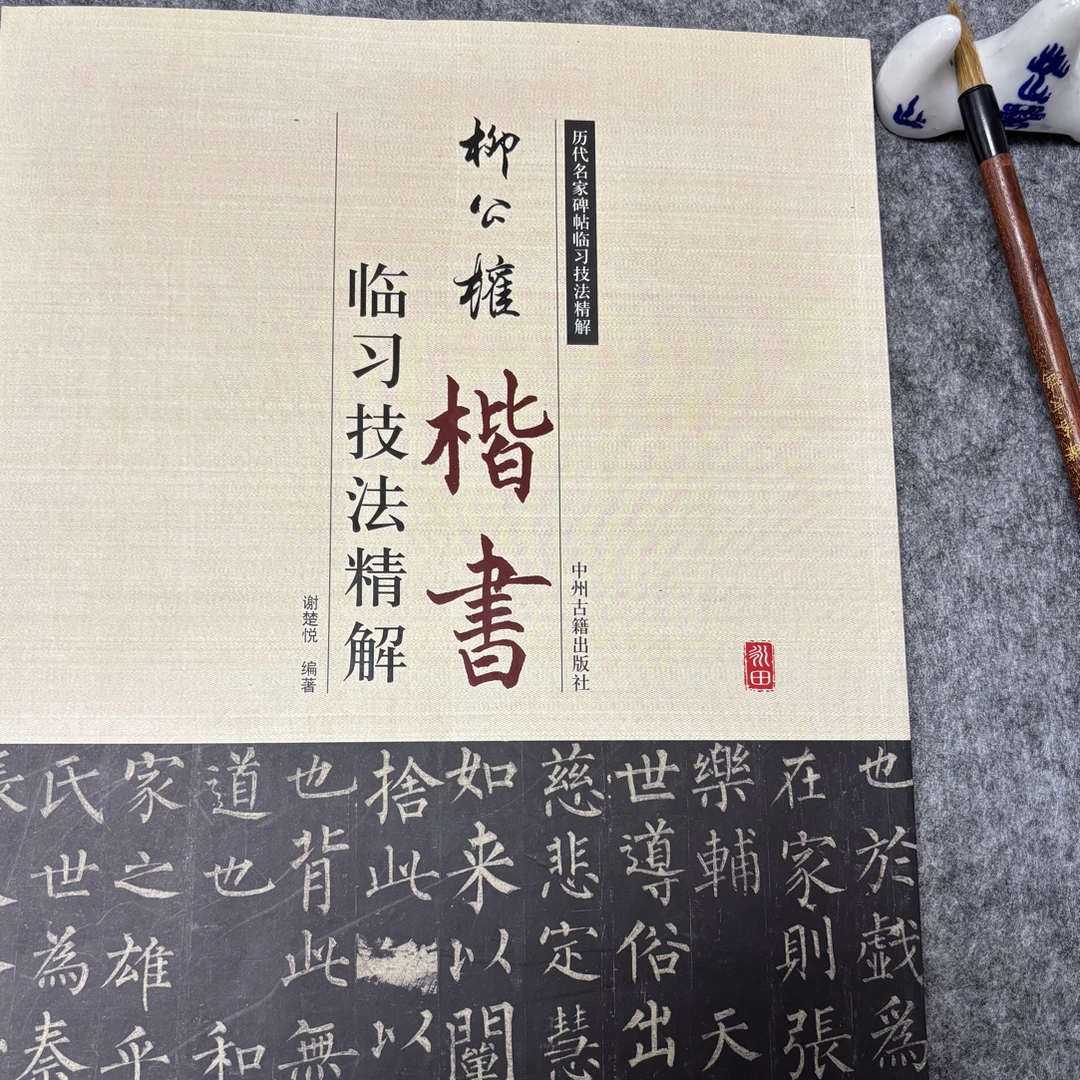 历代名家碑帖临习技法精解
中州古籍出版社
柳公權
楷書
临习技法精解
谢楚悦 编著
永田
也於戲為
在家則張
樂輔天
世導俗出
慈悲定慧
如来以闡
捨此以
也背此無
道也和
家之雄乎
氏世為秦